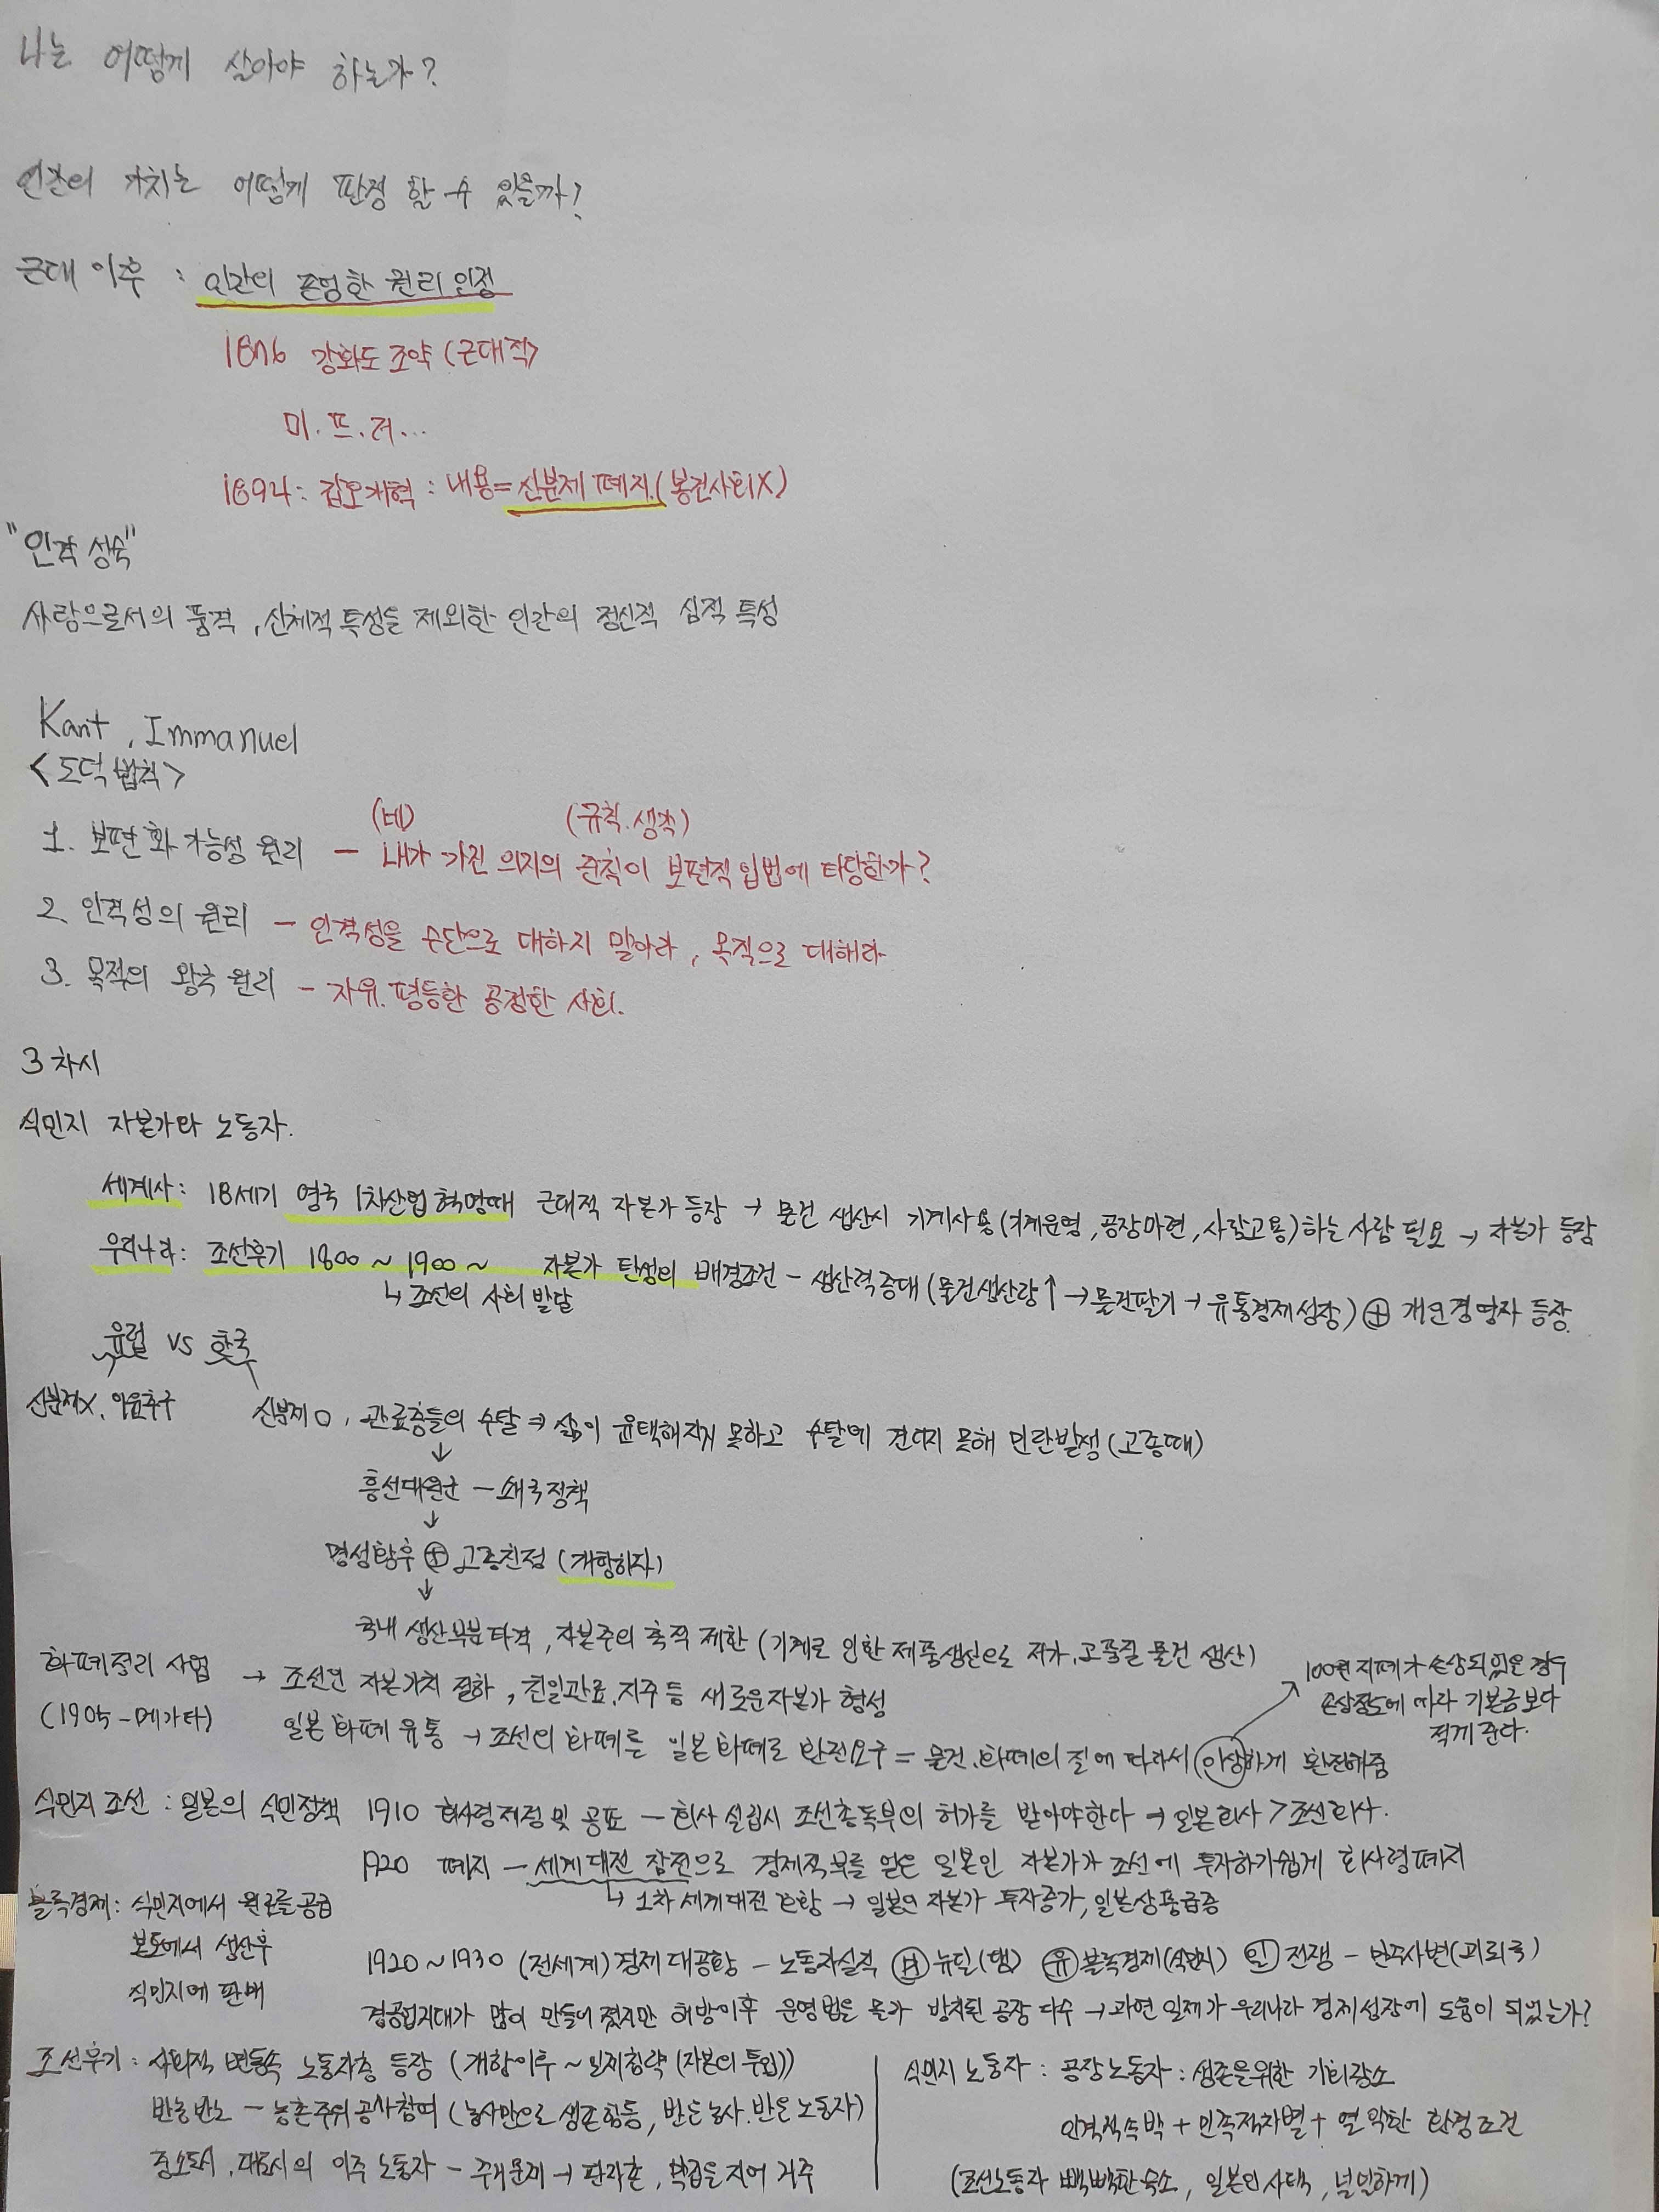 나는 어떻게 살아야 하는가?
인간의 가치는 어떻게 판정 할 수 있을까?
근대 이후 : 인간의 존엄한 권리 인정
1876 강화도 조약 (근대적)
미. 프. 러...
1894: 갑오개혁 : 내용= 신분제 폐지. (봉건사회X)
"인격 성숙"
사람으로서의 품격, 신체적 특성을 제외한 인간의 정신적 심적 특성
Kant, Immanuel
<도덕 법칙>
(네) (규칙.생각)
1. 보편화 가능성 원리 - 내가 가진 의지의 준칙이 보편적 입법에 타당한가?
2. 인격성의 원리 - 인격성을 수단으로 대하지 말아라, 목적으로 대해라
3. 목적의 왕국 원리 - 자유.평등한 공정한 사회.
3차시
식민지 자본가와 노동자.
세계사: 18세기 영국 1차산업혁명때 근대적 자본가 등장 → 물건 생산시 기계사용 (기계운영, 공장마련, 사람고용)하는 사람 필요 → 자본가 등장
우리나라: 조선후기 1800 ~ 1900 ~ 자본가 탄생의 배경조건 - 생산력증대 (물건생산량↑ → 물건팔기 → 유통경제성장) ⊕ 개인경영자 등장.
↳ 조선의 사회 발달
유럽 vs 한국
신분제X, 이윤추구 신분제O, 관료층들의 수탈 ⇒ 삶이 윤택해지지 못하고 수탈에 견디지 못해 민란발생 (고종때)
↓
흥선대원군 - 쇄국정책
↓
명성황후 ⊕ 고종친정 (개항하자)
↓
국내 생산부분 타격, 자본주의 축적 제한 (기계로 인한 제품생산으로 저가, 고품질 물건 생산)
화폐정리 사업 → 조선인 자본가치 절하, 친일관료, 지주 등 새로운자본가 형성
(1905-메가타) 일본 화폐 유통 → 조선의 화폐를 일본 화폐로 환전요구 = 물건, 화폐의 질에 따라서 이상하게 환전해줌
100원 지폐가 손상되있은 경우
손상정도에 따라 기본금보다
적게 준다.
식민지 조선 : 일본의 식민정책 1910 회사령제정 및 공포 - 회사 설립시 조선총독부의 허가를 받아야한다 → 일본회사 > 조선회사.
1920 폐지 - 세계대전 참전으로 경제적부를 얻은 일본인 자본가가 조선에 투자하기쉽게 회사령폐지
↳ 1차 세계대전 호황 → 일본인 자본가 투자증가, 일본상품급증
블록경제: 식민지에서 원료를 공급
본토에서 생산후
식민지에 판매
1920~1930 (전세계) 경제 대공황 - 노동자실직 ⓜ 뉴딜(댐) ㉨ 블록경제(식민지) 전쟁 - 만주사변(괴뢰국)
경공업지대가 많이 만들어 졌지만 해방이후 운영법을 몰라 방치된 공장 다수 → 과연 일제가 우리나라 경제성장에 도움이 되었는가?
조선후기 : 사회적 변동속 노동자층 등장 (개항이후 ~ 일제침략 (자본의 투입))
반농반노 - 농촌주위 공사참여 (농사만으로 생존힘듦, 반은농사.반은 노동자)
중소도시, 대도시의 이주 노동자 - 주거문제 → 판자촌, 학급을 지어 거주
식민지 노동자 : 공장노동자 : 생존을위한 기회장소
인격적속박 + 민족적차별 + 열악한 환경조건
(조선노동자 빽빽한숙소, 일본인사택, 널널하게)